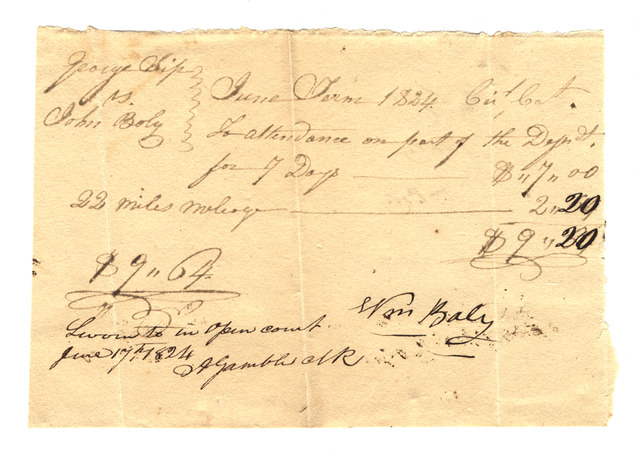 George Sip
vs.
John Boly
June Term 1824. Cirt Cot.
To attendance on part of the Depdt.
for 7 Days — $ 〃 7 〃 00
22 miles mileage — 2 〃 20
$ 9 〃 20
$ 9 〃 64
Wm Boly
Sworn to in open court.
June 17th 1824
Gamble Clk